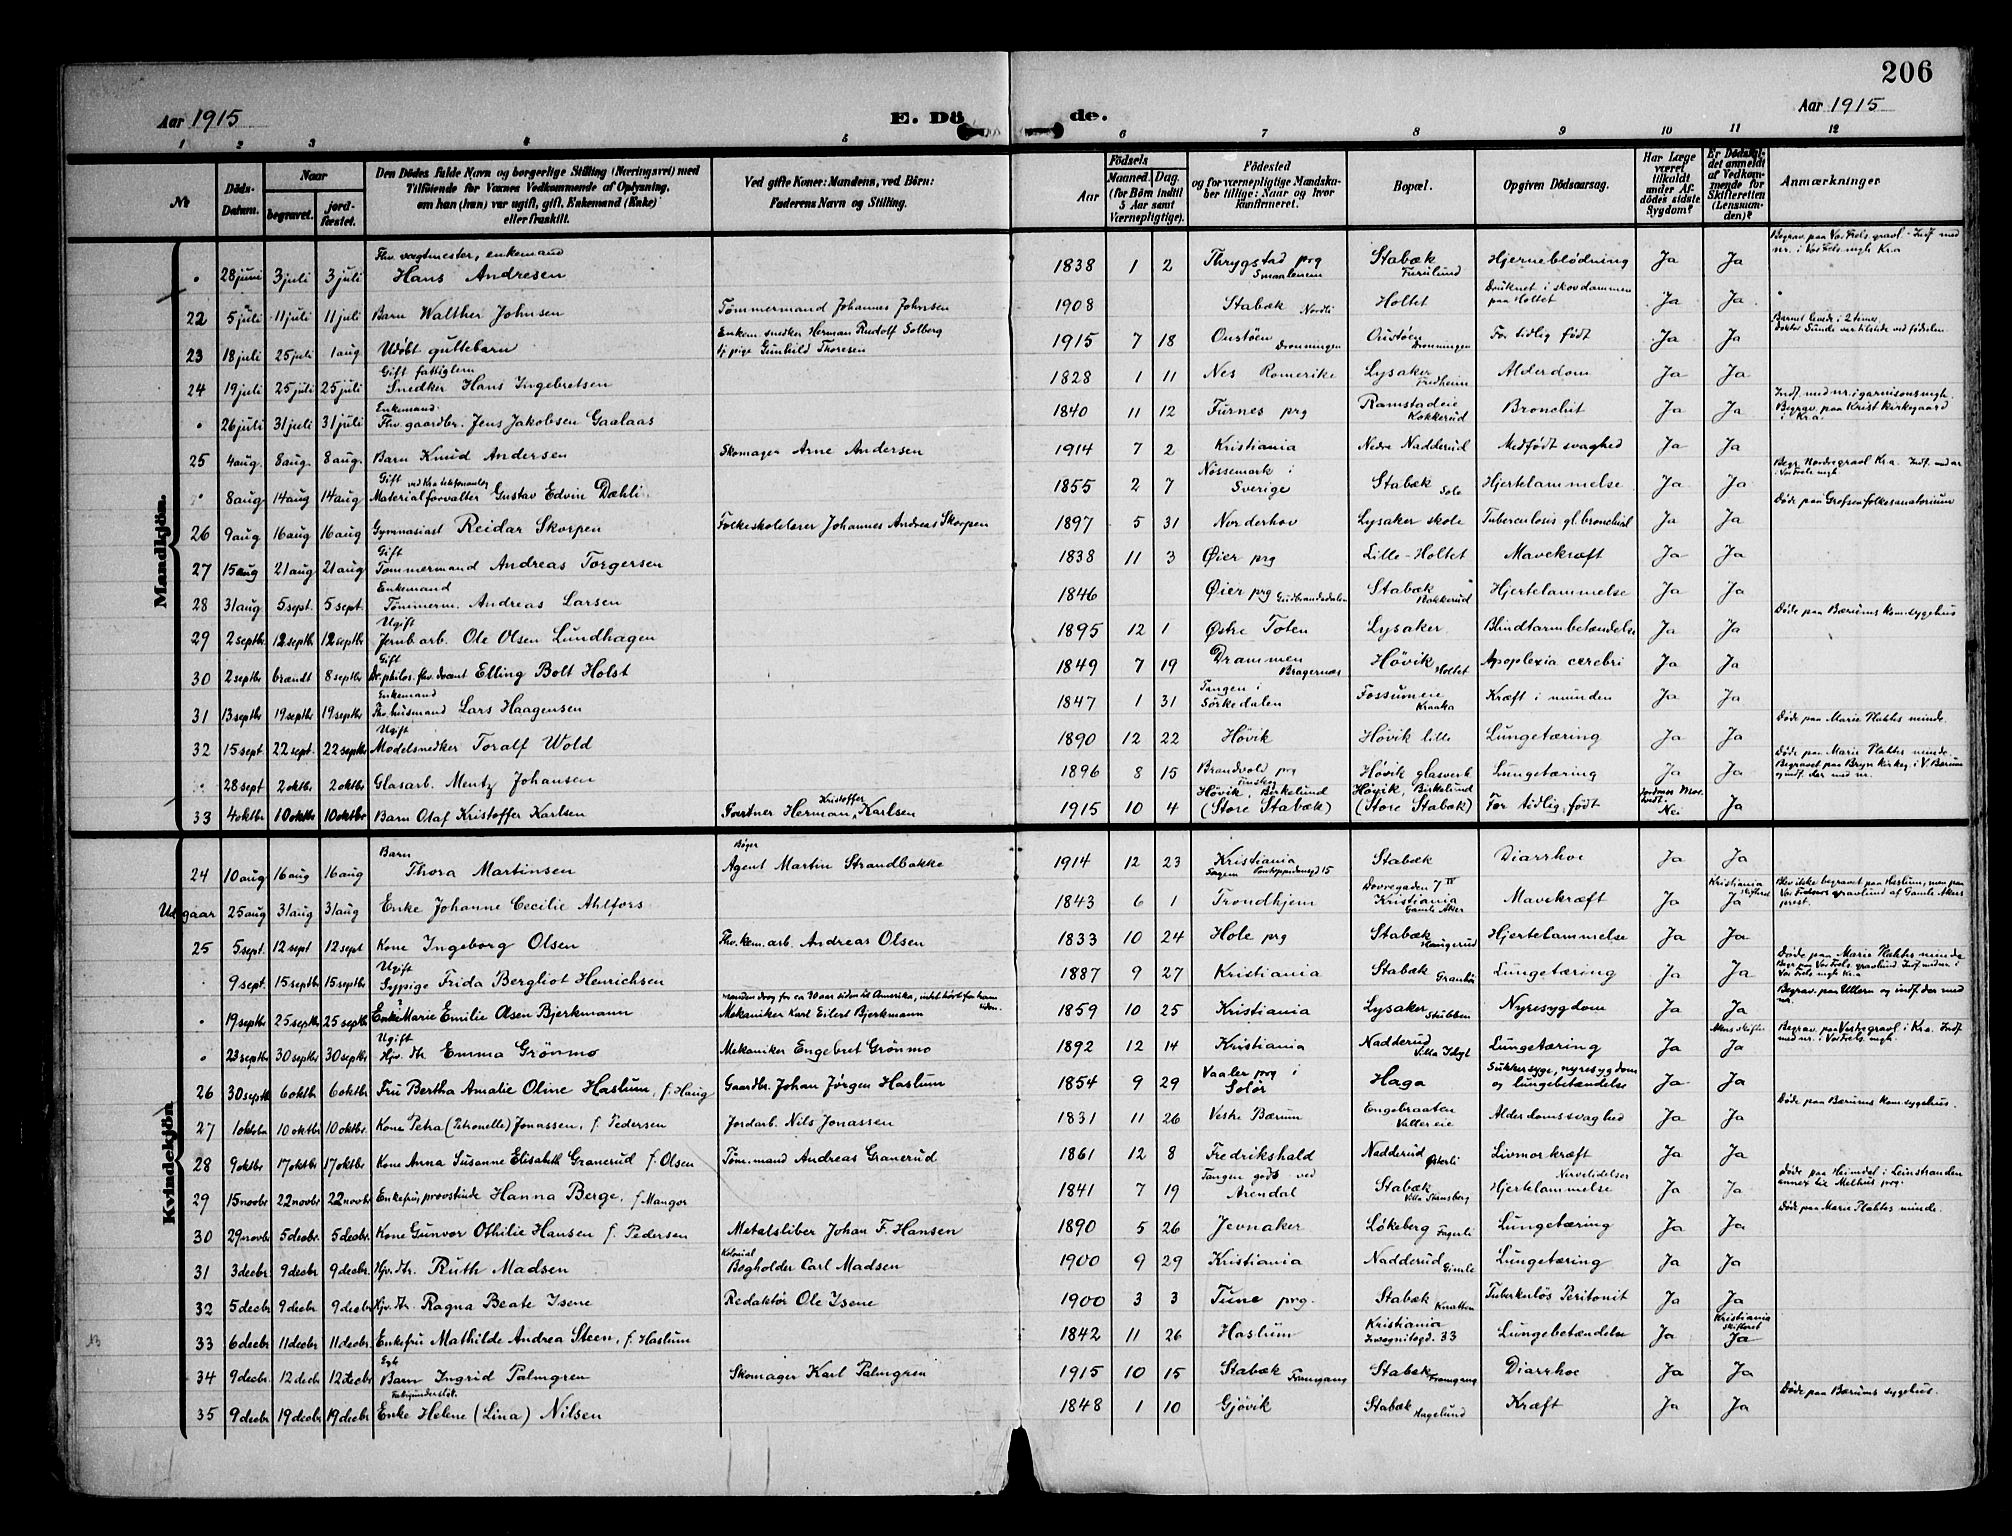 206
Aar 1915 E. Dö de. Aar 1915
1 2 3 4 5 6 7 8 9 10 11 12
No
Döds-Datum.
Naar
begravet.
jord-fæstet.
Den Dödes fulde Navn og borgerlige Stilling (Næringsvei) med
Tilföiende for Voxnes Vedkommende af Oplysning,
om han (hun) var ugift, gift, Enkemand (Enke)
eller fraskilt.
Ved gifte Koner: Mandens, ved Börn:
Faderens Navn og Stilling.
Födsels
Aar
Maaned. Dag.
(for Börn indtil
5 Aar samt
Værnepligtige).
Födested
og for værnepligtige Mandska-
ber tillige: Naar og hvor
konfirmeret.
Bopæl.
Opgiven Dödsaarsag.
Har Læge
været
tilkaldt
under Af-
dödes sidste
Sygdom?
Er Dödsfal-
det anmeldt
af Vedkom-
mende for
Skifteretten
(Lensman-
den)?
Anmærkninger
Mandkjön.
28 juni 3 juli 3 juli Fhv. vægtmester, enkemand Hans Andresen 1838 1 2 Thrygstad prg Smaalenene Stabæk Furulund Hjerneblødning Ja Ja Begrav. paa Vor Frels. gravl. Indf. med nr. i Vor Frels. mgh. Kr.a
22 5 juli 11 juli 11 juli Barn Walther Johnsen Tømmermand Johannes Johnsen 1908 Stabæk Nordli Holtet Druknet i skovdammen paa Holtet Ja Ja
23 18 juli 25 juli 1 aug Udøbt guttebarn Enkem. snedker Herman Rudolf Solberg tj. pige Gunhild Thoresen 1915 7 18 Oustøen Dronningen Oustøen Dronningen For tidlig født Ja Ja Barnet levede i 2 timer. Doktor Sunde var tilstede ved fødselen
24 19 juli 25 juli 25 juli Gift fattiglem Snedker Hans Ingebretsen 1828 1 11 Nes Romerike Lysaker Fredheim Alderdom Ja Ja
26 juli 31 juli 31 juli Enkemand. Fhv. gaardbr. Jens Jakobsen Gaalaas 1840 11 12 Furnes prg Ramstadeie Kokkerud Bronchit Ja Ja Indf. med nr. i garnisons mgh. Begrav. paa Krist kirkegaard i Kr.a
25 4 aug. 8 aug. 8 aug. Barn Knud Andersen Skomager Arne Andersen 1914 7 2 Kristiania Nedre Nadderud Medfødt svaghed Ja Ja
8 aug 14 aug 14 aug Gift ved Kra telefonanlæg Materialforvalter Gustav Edvin Dæhli 1855 2 7 Nössemark i Sverige Stabæk Sole Hjertelammelse Ja Ja Begr. Nordregravl. Kr.a. Indf. med nr i Vor Frels. mgh.
26 9 aug 16 aug 16 aug Gymnasiast Reidar Skorpen Folkeskolelærer Johannes Andreas Skorpen 1897 5 31 Norderhov Lysaker skole Tuberculosis gl. bronchial Ja Ja Døde paa Grefsen folkesanatorium
27 15 aug 21 aug 21 aug Gift Tømmermand Andreas Torgersen 1838 11 3 Øier prg Lille-Holtet Mavekræft Ja Ja
28 31 aug 5 sept. 5 sept. Enkemand Tømmerm. Andreas Larsen 1846 Øier prg Gudbrandsdalen Stabæk Bakkerud Hjertelammelse Ja Ja
29 2 septb 12 septb 12 septb Ugift Jernb arb. Ole Olsen Lundhagen 1895 12 1 Østre Toten Lysaker Blindtarmbetændelse Ja Ja Døde paa Bærums kom. sygehus
30 2 septbr brændt 8 septbr Gift Dr. philos. fhv. docent Elling Bolt Holst 1849 7 19 Drammen Bragernæs Høvik Holtet Apoplexia cerebri Ja Ja
31 13 septbr 19 septbr 19 septbr Enkemand Fhv. husmand Lars Haagensen 1847 1 31 Tangen i Sørkedalen Fossumeie Kraaka Kræft i munden Ja Ja
32 15 sept. 22 sept. 22 septbr Ugift Modelsnedker Toralf Wold 1890 12 22 Høvik Høvik lille Lungetæring Ja Ja Døde paa Marie Plahtes minde.
28 sept 2 oktbr 2 oktbr Glasarb. Mentz Johansen 1896 8 15 Brandvold prg Finskog Høvik glasverk Lungetæring Ja Ja Døde paa Marie Plahtes minde. Begravet paa Bryn kirkeg. i V. Bærum og indf. der med nr.
33 4 oktbr 10 oktbr 10 oktbr Barn Olaf Kristoffer Karlsen Gartner Herman Kristoffer Karlsen 1915 10 4 Høvik, Birkelund (Store Stabæk) Høvik, Birkelund (Store Stabæk) For tidlig født Nei Ja
Kvindekjön
24 10 aug 16 aug 16 aug Barn Thora Martinsen Agent Martin Strandbakke 1914 12 23 Kristiania Pontoppidansgd 15 Stabæk Diarrhoe Ja Ja
Udgaar 25 aug 31 aug 31 aug Enke Johanne Cecilie Ahlfors 1843 6 1 Trondhjem Dovregaden 7 IV Kristiania Gamle Aker Mavekræft Ja Kristiania skifteret Ja Blev ikke begravet paa Haslum, men paa Vor Frelsers gravlund af Gamle Akers prest.
25 5 sept. 12 sept 12 sept Kone Ingeborg Olsen Fhv. kem. arb. Andreas Olsen 1833 10 24 Hole prg Stabæk Haugerud Hjertelammelse Ja Ja
9 sept. 15 septbr 15 septbr Ugift Sypige Frida Bergliot Henrichsen 1887 9 27 Kristiania Stabæk Granbo Lungetæring Ja Ja Døde paa Marie Plahtes minde Begr. paa Vor Frels. gravlund. Indf. med nr. i Vor Frels. mgh Kr.a
19 septbr 25 septbr 25 septbr Enke Marie Emilie Olsen Bjerkmann manden drog for ca 30 aar siden til Amerika, intet hørt fra ham siden. Mekaniker Karl Eilert Bjerkmann 1859 10 25 Kristiania Lysaker Stubben Nyresygdom Ja Ja Begrav. paa Ullern og indf. der med nr.
23 septbr 30 septbr 30 septbr Ugift Hjv. dtr. Emma Grønmo Mekaniker Engebret Grønmo 1892 12 14 Kristiania Nadderud Villa Idyl Lungetæring Ja Akers skifter. Ja Begrav. paa Vestregravl. i Kr.a. Indf med nr. i Vor Frels. mgh.
26 30 septb 6 oktbr 6 oktbr Fru Bertha Amalie Oline Haslum, f. Haug Gaardbr. Johan Jørgen Haslum 1854 9 29 Vaaler prg i Solør Haga Sukkersyge, nyresygdom og lungebetændelse Ja Ja
27 1 oktober 10 oktbr 10 oktbr. Kone Petra (Petronelle) Jonassen, f. Pedersen Jordarb. Nils Jonassen 1831 11 26 Vestre Bærum Engebraaten Vallereie Alderdomssvaghed Ja Ja Døde paa Bærums kom. sygehus.
28 9 oktbr 17 oktbr 17 oktbr Kone Anna Susanne Elisabeth Granerud f. Olsen Tøm.mand Andreas Granerud 1861 12 8 Fredrikshald Nadderud Østerli Livmorkræft Ja Ja
29 15 novbr 22 novbr 22 novbr Enkefru, provstinde Hanna Berge, f. Mangor 1841 7 19 Tangen gods ved Arendal Stabæk Villa Skansberg Nervelidelser Hjertelammelse Ja Ja Døde paa Heimdal i Leinstranden annex til Melhus prg.
30 29 novbr 5 decbr. 5 decbr. Kone Gunvor Othilie Hansen f. Pedersen Metalsliber Johan F. Hansen 1890 5 26 Jevnaker Løkeberg Fagerli Lungetæring Ja Ja Døde paa Marie Plahtes minde.
31 3 decbr. 9 decbr 9 decbr. Hjv. dtr. Ruth Madsen Kolonial Bogholder Carl Madsen 1900 9 29 Kristiania Nadderud Gimle Lungetæring Ja Ja
32 5 decbr 9 decbr 9 decbr Hjv. dtr. Ragna Beate Isene Redaktør Ole Isene 1900 3 3 Tune prg. Stabæk Knatten Tuberkuløs Peritonit Ja Ja
33 6 decbr 11 decbr 11 decbr. Enkefru Mathilde Andrea Steen, f. Haslum 1842 11 26 Haslum Kristiania Incognitogd. 33 Lungebetændelse Ja Kristiania skifteret Ja
34 9 decbr. 12 decbr 12 decbr Barn Ingrid Palmgren Skomager Karl Palmgren 1915 10 15 Stabæk Framgang Stabæk Framgang Diarrhoe Ja Ja
35 9 decbr 19 decbr 19 decbr Fattigunderstøt. Enke Helene (Lina) Nilsen 1848 1 10 Gjøvik Stabæk Hagelund Kræft Ja Ja Døde paa Bærums sygehus.